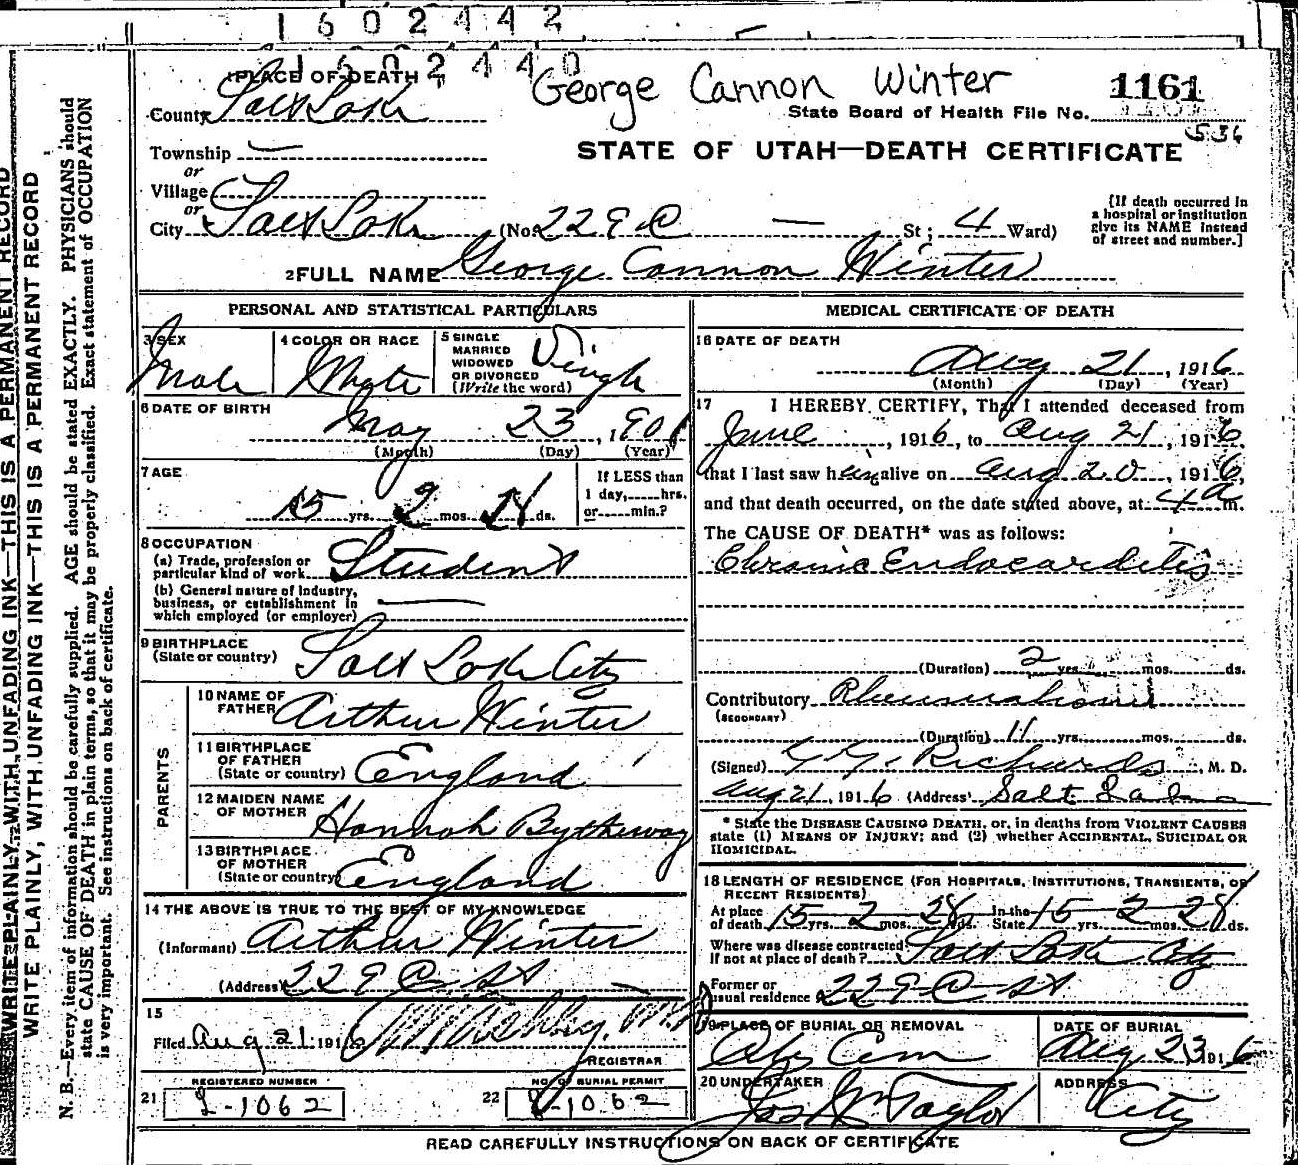 1602442
1602440
1 PLACE OF DEATH
George Cannon Winter
1161
County Salt Lake
State Board of Health File No.
536
STATE OF UTAH—DEATH CERTIFICATE
Township —
or
Village
or
City Salt Lake (No. 229 C — St; 4 Ward)
[If death occurred in
a hospital or institution
give its NAME instead
of street and number.]
2 FULL NAME George Cannon Winter
PERSONAL AND STATISTICAL PARTICULARS
3 SEX
Male
4 COLOR OR RACE
White
5 SINGLE
MARRIED
WIDOWED
OR DIVORCED
(Write the word)
Single
6 DATE OF BIRTH
May 23, 1901
(Month) (Day) (Year)
7 AGE
15 yrs. 2 mos. 28 ds.
If LESS than
1 day, hrs.
or min.?
8 OCCUPATION
(a) Trade, profession or
particular kind of work Student
(b) General nature of Industry,
business, or establishment in
which employed (or employer) —
9 BIRTHPLACE
(State or country) Salt Lake City
PARENTS
10 NAME OF
FATHER Arthur Winter
11 BIRTHPLACE
OF FATHER
(State or country) England
12 MAIDEN NAME
OF MOTHER Hannah Bytheway
13 BIRTHPLACE
OF MOTHER
(State or country) England
14 THE ABOVE IS TRUE TO THE BEST OF MY KNOWLEDGE
(Informant) Arthur Winter
(Address) 229 C St
15
Filed Aug 21 1916
REGISTRAR
REGISTERED NUMBER
21 L-1062
NO. OF BURIAL PERMIT
22 L-1062
MEDICAL CERTIFICATE OF DEATH
16 DATE OF DEATH
Aug 21, 1916
(Month) (Day) (Year)
17 I HEREBY CERTIFY, That I attended deceased from
June, 1916, to Aug 21, 1916
that I last saw him alive on Aug 20, 1916,
and that death occurred, on the date stated above, at 4 a m.
The CAUSE OF DEATH* was as follows:
Chronic Endocarditis
(Duration) 2 yrs. mos. ds.
Contributory Rheumatism
(SECONDARY)
(Duration) 11 yrs. mos. ds.
(Signed) G. G. Richards, M. D.
Aug 21, 1916 (Address) Salt Lake
* State the DISEASE CAUSING DEATH, or, in deaths from VIOLENT CAUSES
state (1) MEANS OF INJURY; and (2) whether ACCIDENTAL, SUICIDAL OR
HOMICIDAL.
18 LENGTH OF RESIDENCE (FOR HOSPITALS, INSTITUTIONS, TRANSIENTS, OR
RECENT RESIDENTS)
At place
of death 15 yrs. 2 mos. 28 ds. In the
State 15 yrs. 2 mos. 28 ds.
Where was disease contracted
If not at place of death? Salt Lake City
Former or
usual residence 229 C St
19 PLACE OF BURIAL OR REMOVAL
City Cem
DATE OF BURIAL
Aug 23 1916
20 UNDERTAKER
Jos Wm Taylor
ADDRESS
City
READ CAREFULLY INSTRUCTIONS ON BACK OF CERTIFICATE
WRITE PLAINLY, WITH UNFADING INK—THIS IS A PERMANENT RECORD
WRITE PLAINLY, WITH UNFADING INK—THIS IS A PERMANENT RECORD
N. B.—Every item of information should be carefully supplied. AGE should be stated EXACTLY. PHYSICIANS should
state CAUSE OF DEATH in plain terms, so that it may be properly classified. Exact statement of OCCUPATION
is very important. See instructions on back of certificate.